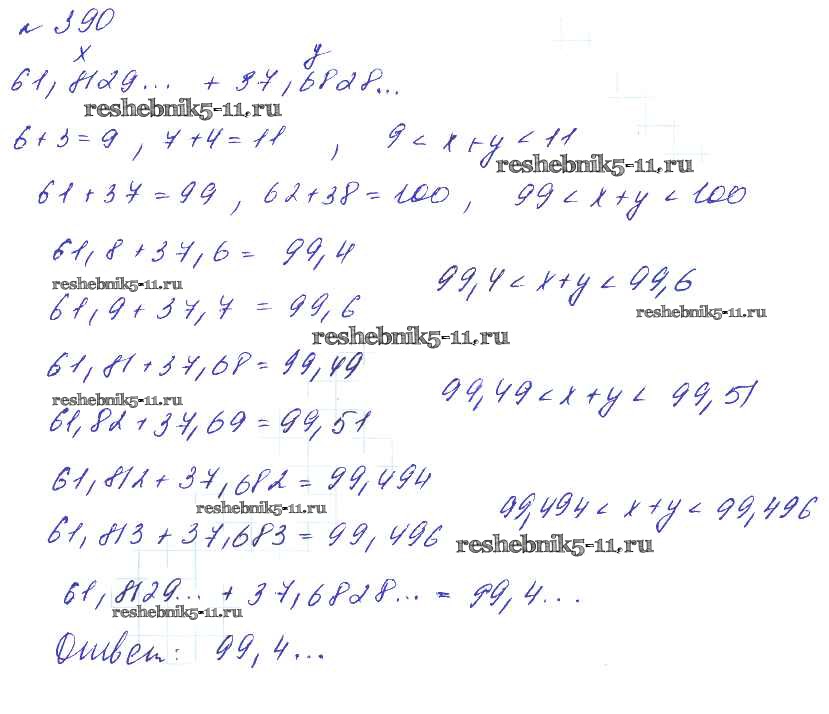 № 390
x y
61,8129... + 37,6828...
reshebnik5-11.ru
6+3=9, 7+4=11, 9 < x+y < 11
reshebnik5-11.ru
61+37=99, 62+38=100, 99 < x+y < 100
61,8+37,6= 99,4
reshebnik5-11.ru
99,4 < x+y < 99,6
61,9+37,7 = 99,6
reshebnik5-11.ru
reshebnik5-11.ru
61,81+37,68=99,49
reshebnik5-11.ru
99,49 < x+y < 99,51
61,82+37,69=99,51
61,812+37,682=99,494
reshebnik5-11.ru
99,494 < x+y < 99,496
61,813+37,683=99,496
reshebnik5-11.ru
61,8129... + 37,6828... = 99,4...
reshebnik5-11.ru
Ответ: 99,4...